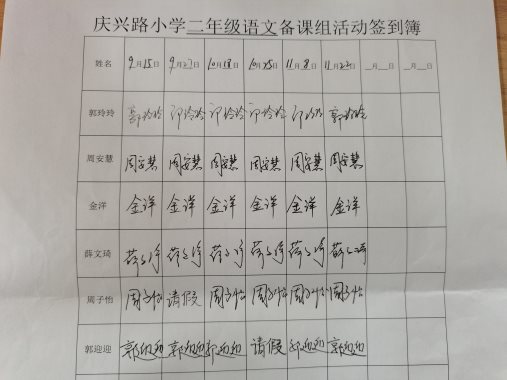 庆兴路小学二年级语文备课组活动签到簿
姓名 9月15日 9月27日 10月18日 10月25日 11月8日 11月22日 __月__日 __月__日
郭玲玲 郭玲玲 郭玲玲 郭玲玲 郭玲玲 郭玲玲 郭玲玲
周安慧 周安慧 周安慧 周安慧 周安慧 周安慧 周安慧
金洋 金洋 金洋 金洋 金洋 金洋 金洋
薛文琦 薛文琦 薛文琦 薛文琦 薛文琦 薛文琦 薛文琦
周子怡 周子怡 请假 周子怡 周子怡 周子怡 周子怡
郭迎迎 郭迎迎 郭迎迎 郭迎迎 请假 郭迎迎 郭迎迎